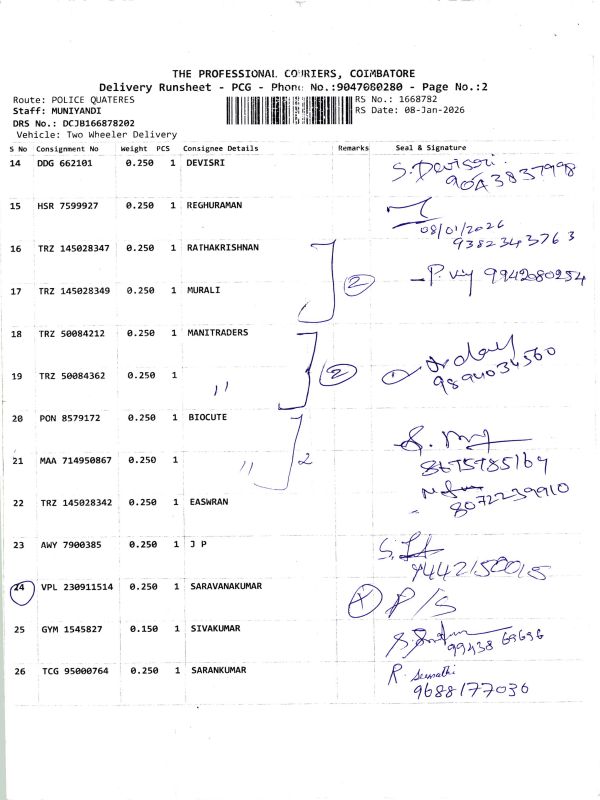 THE PROFESSIONAL COURIERS, COIMBATORE
Delivery Runsheet - PCG - Phone No.:9047080280 - Page No.:2
Route: POLICE QUATERES
Staff: MUNIYANDI
DRS No.: DCJB166878202
Vehicle: Two Wheeler Delivery
RS No.: 1668782
RS Date: 08-Jan-2026
S No Consignment No Weight PCS Consignee Details Remarks Seal & Signature
14 DDG 662101 0.250 1 DEVISRI S. Devisri
9043837998
15 HSR 7599927 0.250 1 REGHURAMAN
08/01/2026
9382343763
16 TRZ 145028347 0.250 1 RATHAKRISHNAN
17 TRZ 145028349 0.250 1 MURALI 2 9942080254
18 TRZ 50084212 0.250 1 MANITRADERS
19 TRZ 50084362 0.250 1 " 2
9894034560
20 PON 8579172 0.250 1 BIOCUTE
21 MAA 714950867 0.250 1 " 2
8675785169
22 TRZ 145028342 0.250 1 EASWRAN
8072239910
23 AWY 7900385 0.250 1 J P
9442150015
24 VPL 230911514 0.250 1 SARAVANAKUMAR P/S
25 GYM 1545827 0.150 1 SIVAKUMAR
99438 69696
26 TCG 95000764 0.250 1 SARANKUMAR R.
9688177036